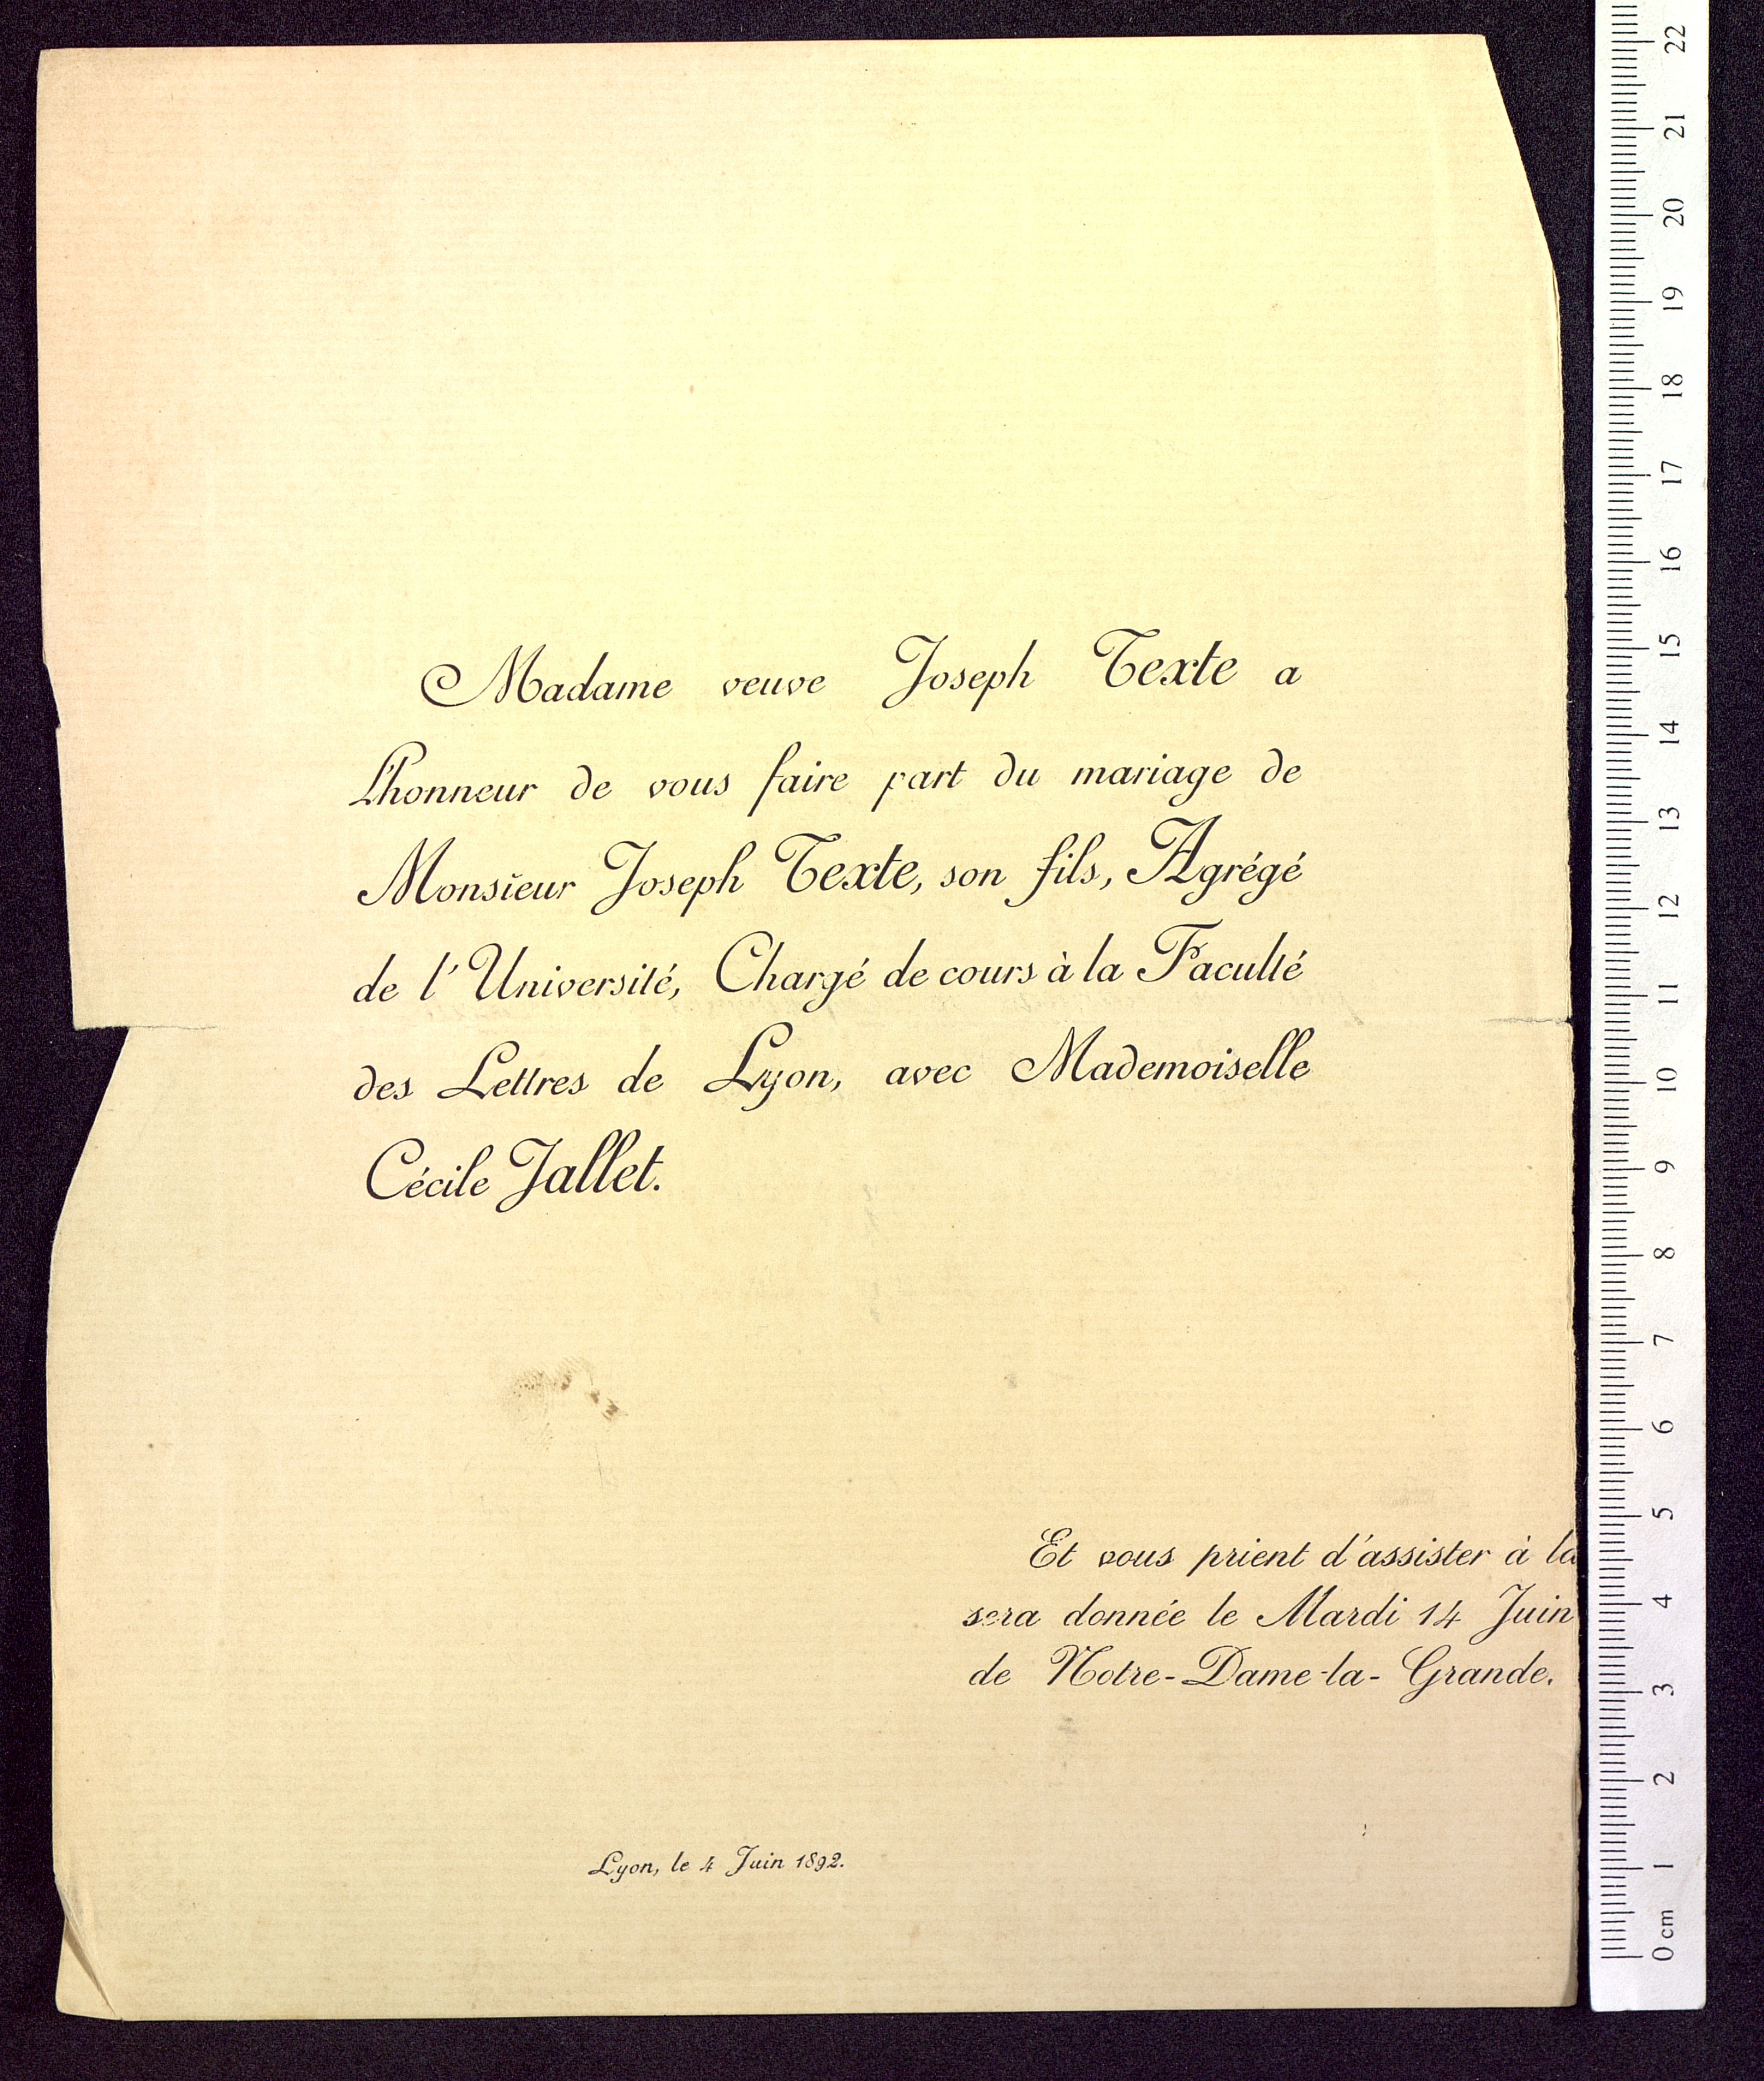 Madame veuve Joseph Texte a
l'honneur de vous faire part du mariage de
Monsieur Joseph Texte, son fils, Agrégé
de l'Université, Chargé de cours à la Faculté
des Lettres de Lyon, avec Mademoiselle
Cécile Jallet.
Et vous prient d'assister à la
sera donnée le Mardi 14 Juin
de Notre-Dame-la-Grande.
Lyon, le 4 Juin 1892.
22
21
20
19
18
17
16
15
14
13
12
11
10
9
8
7
6
5
4
3
2
1
0 cm